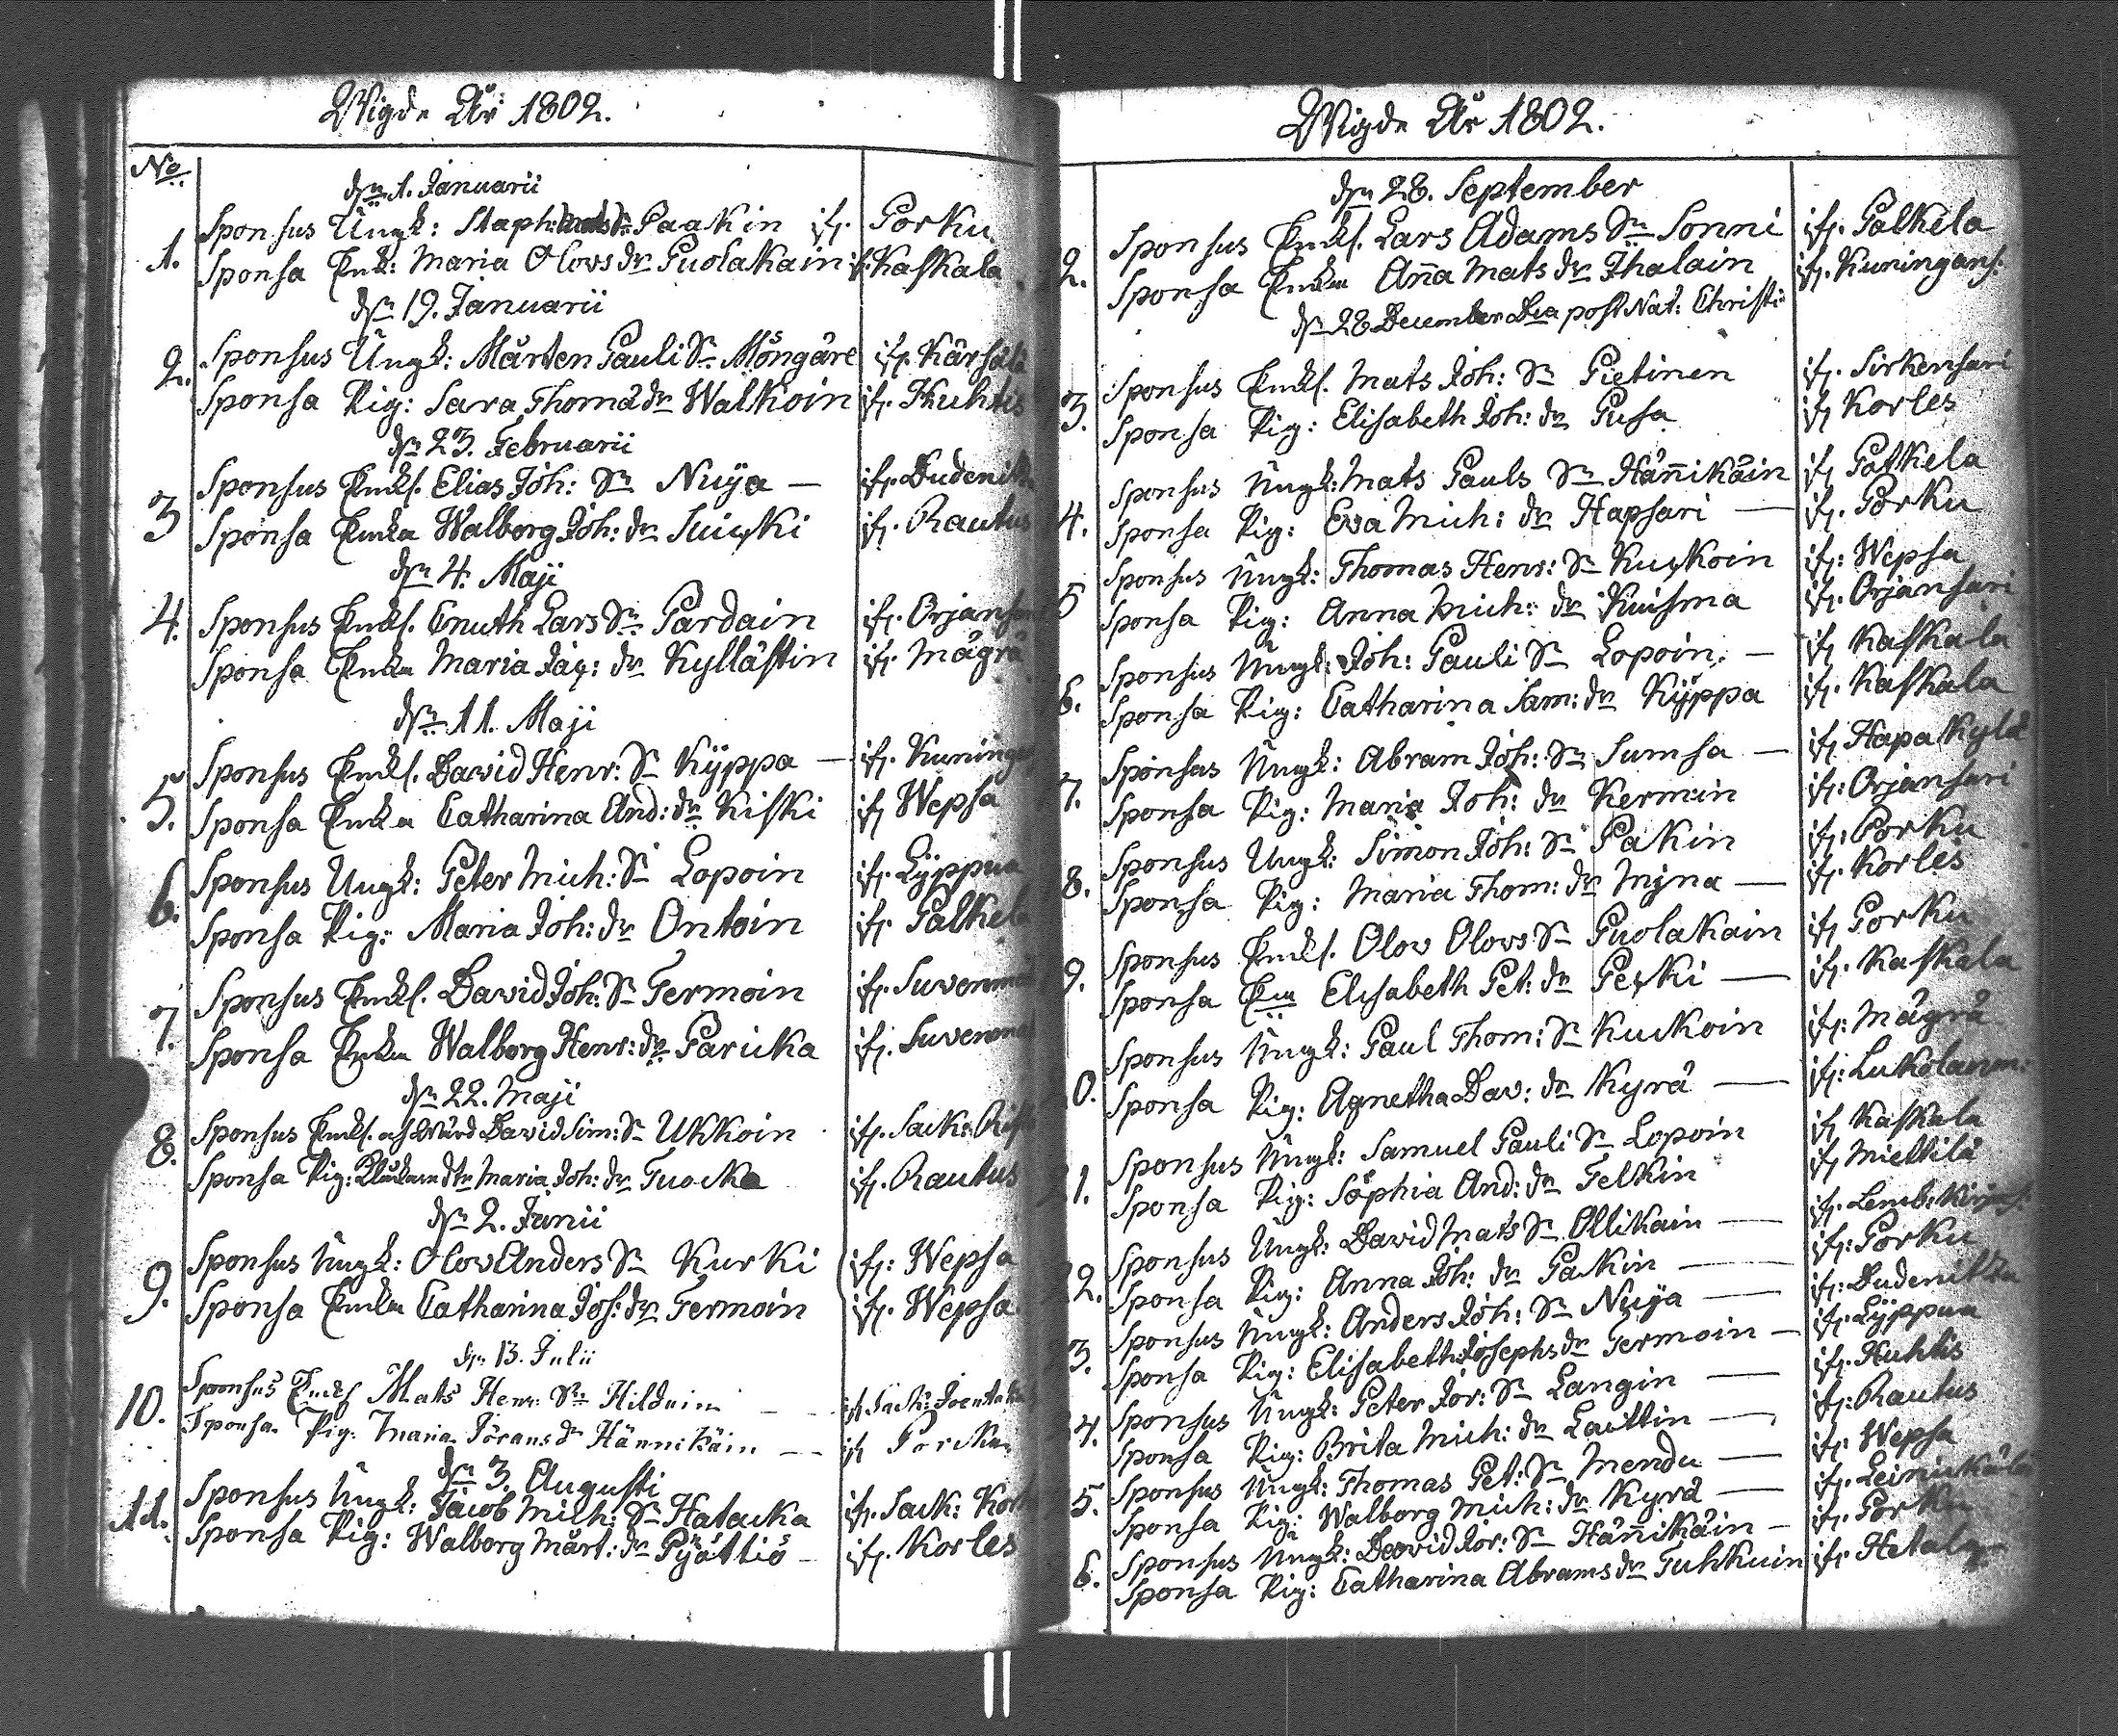 Wigde År 1802.
No
dn 1. Januarii
1. Sponsus Ungk: Staph: Mats Sn Paakin ifr. Porku
Sponsa Enk: Maria Olovs dr Puolakain ifr. Kaskala
dn 19. Januarii
2. Sponsus Ungk: Mårten Pauli Sn Möngäre ifr. Kärsälä
Sponsa Pig: Sara Thomæ dr Walkoin ifr. Huhtis
dn 23. Februarii
3 Sponsus Enkl. Elias Joh: Sn Nuÿa — ifr. Dudenitz
Sponsa Enka Walborg Joh: dr Suicki ifr. Rautus
dn 4. Maji
4. Sponsus Enkl. Cnuth Lars Sn Pardain ifr. Orjansari
Sponsa Enka Maria Jac: dr Kyllästin ifr. Mägrä
dn 11. Maji
5. Sponsus Enkl. David Henr: Sn Kÿppa — ifr. Kuninga
Sponsa Enka Catharina And: dr Kiski ifr Wepsa
6. Sponsus Ungk: Peter Mich: Sn Lopoin ifr. Lÿppua
Sponsa Pig: Maria Joh: dr Ontoin ifr. Palkela
7. Sponsus Enkl. David Joh: Sn Termoin ifr. Suvenma
Sponsa Enka Walborg Henr: dr Paricka ifr. Suvenma
dn 22. Maji
8. Sponsus Enkl. David Sim: Sn Ukkoin ifr. Sack: Rist
Sponsa Pig: Maria Joh: dr Tuocka ifr. Rautus
dn 2. Junii
9. Sponsus Ungk: Olov Anders Sn Kurki ifr: Wepsa
Sponsa Enka Catharina Joh: dr Termoin ifr. Wepsa
dn 13. Julii
10. Sponsus Enkl Mats Henr: Sn Hildnin — ifr Sack:
Sponsa Pig. Maria Jörans dr Hännikäin — ifr Porku
dn 3. Augusti
11. Sponsus Ungk: Jacob Mich: Sn Hatacka ifr. Sack: Kort
Sponsa Pig: Walborg Mårt: dr Pÿöttiö — ifr. Korles
Wigde År 1802.
dn 28. September
2. Sponsus Enkl. Lars Adams Sn Sonni ifr. Palkela
Sponsa Enka Anna Mats dr Ihalain ifr. Kuningans:
dn 28 December Dca post Nat: Christi
3. Sponsus Enkl. Mats Joh: Sn Pietinen ifr. Sirkensari
Sponsa Pig: Elisabeth Joh: dr Pusa ifr Korles
4. Sponsus Ungk: Mats Pauls Sn Hännikäin ifr Palkela
Sponsa Pig: Eva Mich: dr Hapsari — ifr. Porku
5 Sponsus Ungk: Thomas Henr: Sn Kuckoin ifr: Wepsa
Sponsa Pig: Anna Mich: dr Kuisma ifr. Orjansari
6. Sponsus Ungk: Joh: Pauli Sn Lopoin. — ifr Kaskala
Sponsa Pig: Catharina Sam: dr Kÿppa ifr. Kaskala
7. Sponsus Ungk: Abram Joh: Sn Sumsa — ifr Hapa Kylä
Sponsa Pig: Maria Joh: dr Kermin ifr: Orjansari
8. Sponsus Ungk: Simon Joh: Sn Pakin ifr: Porku
Sponsa Pig: Maria Thom: dr Myna — ifr. Korles
9. Sponsus Enkl. Olov Olovs Sn Puolakain ifr Porku
Sponsa Elisabeth Pet: dr Pecki — ifr. Kaskala
0. Sponsus Ungk: Paul Thom: Sn Kuckoin ifr: Mägrä
Sponsa Pig: Agnetha Dav: dr Kyrä — ifr: Lukolanm:
21. Sponsus Ungk: Samuel Pauli Sn Lopoin ifr Kaskala
Sponsa Pig: Sophia And: dr Telkin ifr Miettilä
2. Sponsus Ungk: David Mats Sn Ollikain — ifr. Lemb: Kirjas:
Sponsa Pig: Anna Joh: dr Packin — ifr: Porku
3. Sponsus Ungk: Anders Joh: Sn Nuÿa — ifr: Dudenitza
Sponsa Pig: Elisabeth Josephs dr Termoin — ifr. Lÿppua
4. Sponsus Ungk: Peter Jör: Sn Langin — ifr. Huhtis
Sponsa Pig: Brita Mich: dr Laittin — ifr: Rautus
5. Sponsus Ungk: Thomas Pet: Sn Mendu — ifr. Wepsa
Sponsa Pig: Walborg Mich: dr Kyrä — ifr. Leinikälä
6. Sponsus Ungk: David Jör: Sn Hännikäin — ifr. Porku
Sponsa Pig: Catharina Abrams dr Tuhkuin ifr. Hetala